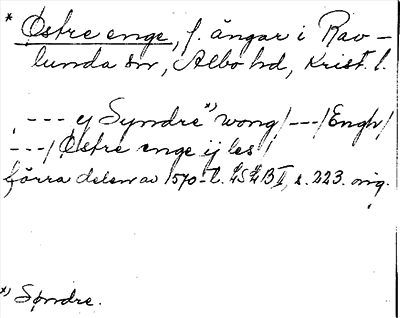 * Østre enge, f. ängar i Rav-
lunda sn, Albo hd, Krist. l.
, --- ej Syndre*) wong /---/ Engh /
---/ Østre enge ij les /
förra delen av 1570-t. LSLB I, s. 223. orig.
*) Søndre.